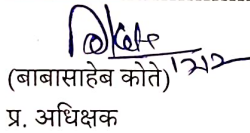 (बाबासाहेब कोते)
प्र. अधिक्षक